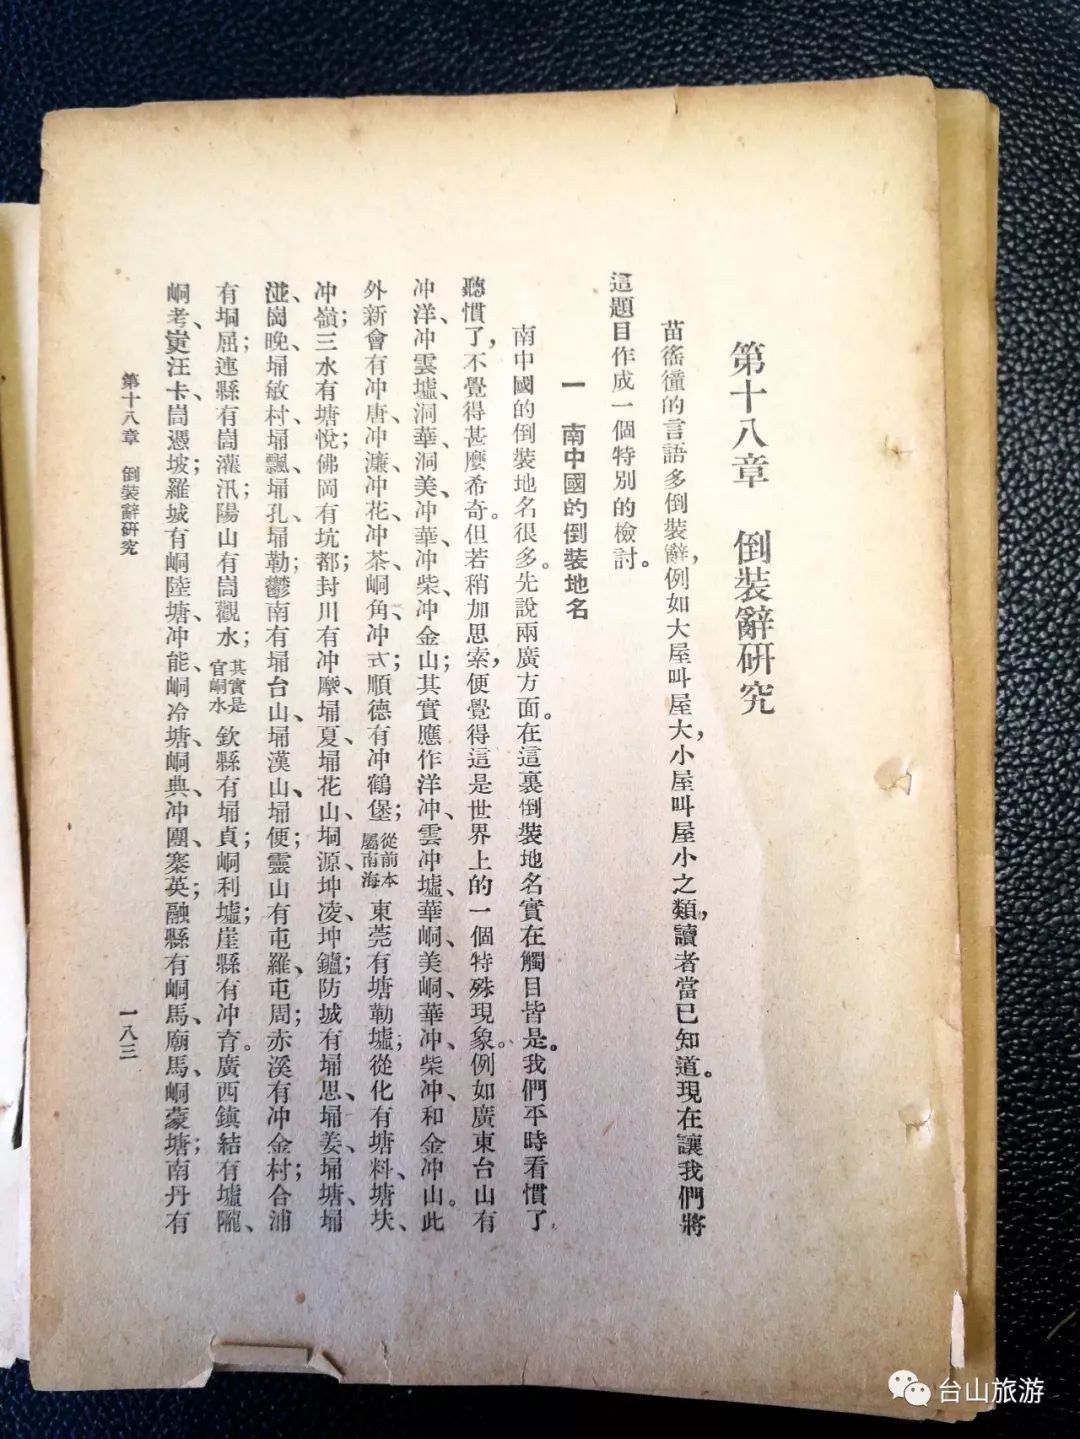 第十八章　倒裝辭研究
苗徭徸的言語多倒裝辭，例如大屋叫屋大，小屋叫屋小之類，讀者當已知道。現在讓我們將
這題目作成一個特別的檢討。
一　南中國的倒裝地名
南中國的倒裝地名很多。先說兩廣方面。在這裏倒裝地名實在觸目皆是。我們平時看慣了，
聽慣了，不覺得甚麼希奇。但若稍加思索，便覺得這是世界上的一個特殊現象。例如廣東台山有
冲洋、冲雲墟、洞華、洞美、冲華、冲柴、冲金山；其實應作洋冲、雲冲墟、華峒、美峒、華冲、柴冲、和金冲山。此
外新會有冲唐、冲濂、冲花、冲茶、峒角、冲式；順德有冲鶴堡；從前本屬南海東莞有塘勒墟；從化有塘料、塘坱、
冲嶺；三水有塘悅；佛岡有坑都；封川有冲壓、埇夏、埇花山、垌源、坤凌、坤鑪；防城有埇思、埇姜、埇塘、埇
湴、崗晚、埇敏村、埇飄、埇孔、埇勒；鬱南有埇台山、埇漢山、埇便；靈山有屯羅、屯周；赤溪有冲金村；合浦
有垌屈；連縣有崗灌汛；陽山有崗觀水；其實是官峒水欽縣有埇貞；峒利墟；崖縣有冲育。廣西鎮結有墟隴、
峒考、汪卡、崗憑坡；羅城有峒陸塘、冲能、峒冷塘、峒典、冲團、寨英；融縣有峒馬、廟馬、峒蒙塘；南丹有
第十八章　倒裝辭研究
一八三
台山旅游